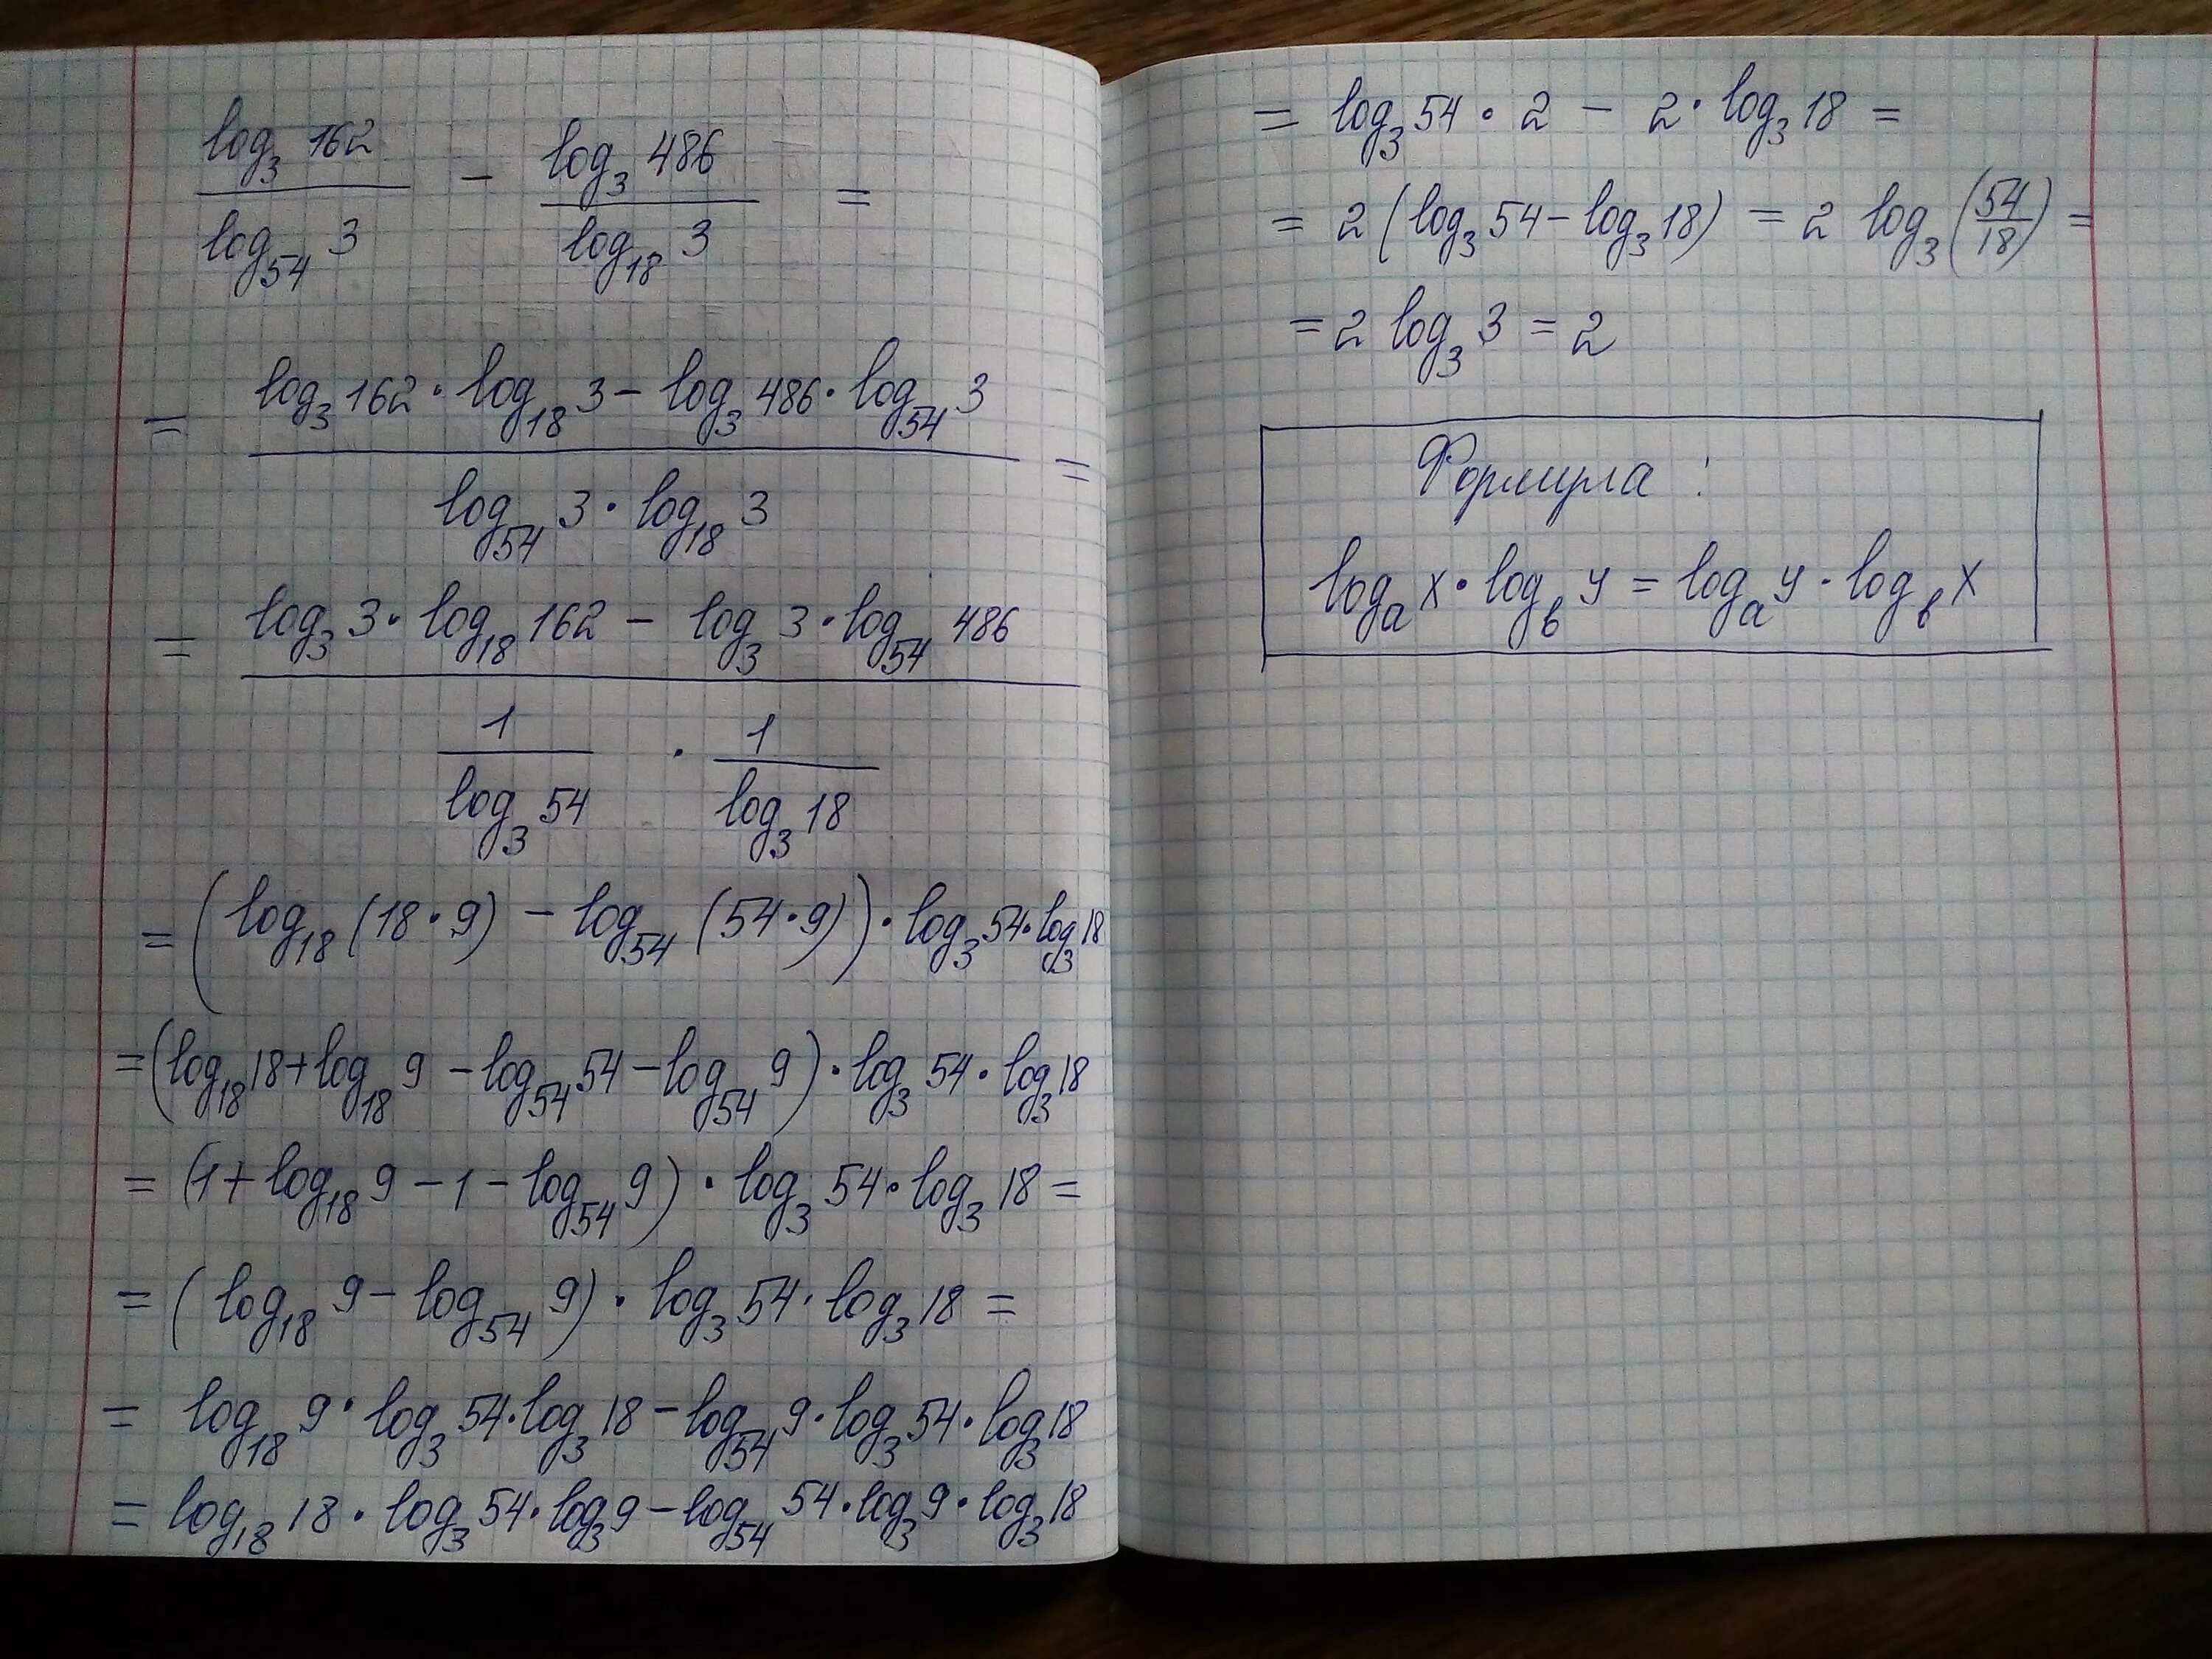 log₃ 162 / log₅₄ 3 − log₃ 486 / log₁₈ 3 =
= (log₃ 162 · log₁₈ 3 − log₃ 486 · log₅₄ 3) / (log₅₄ 3 · log₁₈ 3) =
= (log₃ 3 · log₁₈ 162 − log₃ 3 · log₅₄ 486) / (1 / log₃ 54 · 1 / log₃ 18)
= (log₁₈ (18 · 9) − log₅₄ (54 · 9)) · log₃ 54 · log₃ 18
= (log₁₈ 18 + log₁₈ 9 − log₅₄ 54 − log₅₄ 9) · log₃ 54 · log₃ 18
= (1 + log₁₈ 9 − 1 − log₅₄ 9) · log₃ 54 · log₃ 18 =
= (log₁₈ 9 − log₅₄ 9) · log₃ 54 · log₃ 18 =
= log₁₈ 9 · log₃ 54 · log₃ 18 − log₅₄ 9 · log₃ 54 · log₃ 18
= log₁₈ 18 · log₃ 54 · log₃ 9 − log₅₄ 54 · log₃ 9 · log₃ 18
= log₃ 54 · 2 − 2 · log₃ 18 =
= 2 (log₃ 54 − log₃ 18) = 2 log₃ (54/18) =
= 2 log₃ 3 = 2
Формула :
logₐ x · log_в y = logₐ y · log_в x